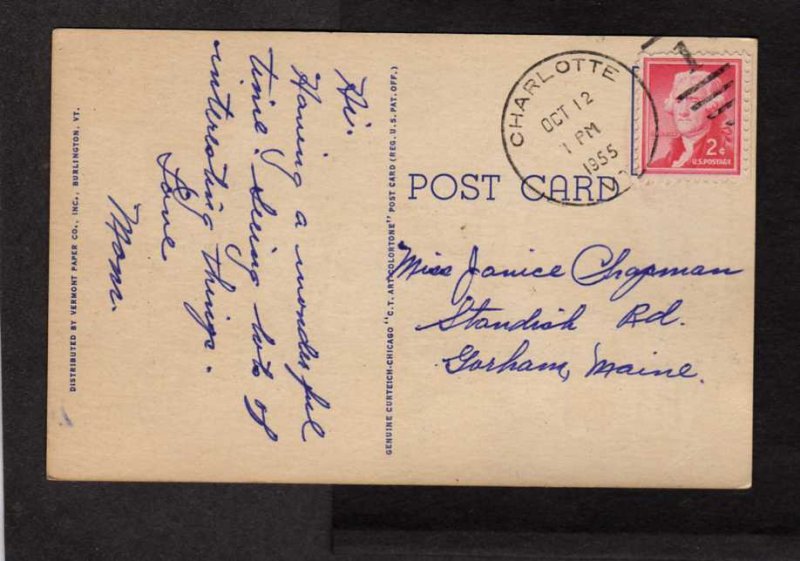 Hi.
Having a wonderful
time. Seeing lots of
interesting things.
Love
Mom.
DISTRIBUTED BY VERMONT PAPER CO., INC., BURLINGTON, VT.
GENUINE CURTEICH-CHICAGO "C.T. ART-COLORTONE" POST CARD (REG. U.S. PAT. OFF.)
CHARLOTTE
OCT 12
1 PM
1955
VT.
1
2¢
U.S. POSTAGE
POST CARD
Miss Janice Chapman
Standish Rd.
Gorham, Maine.